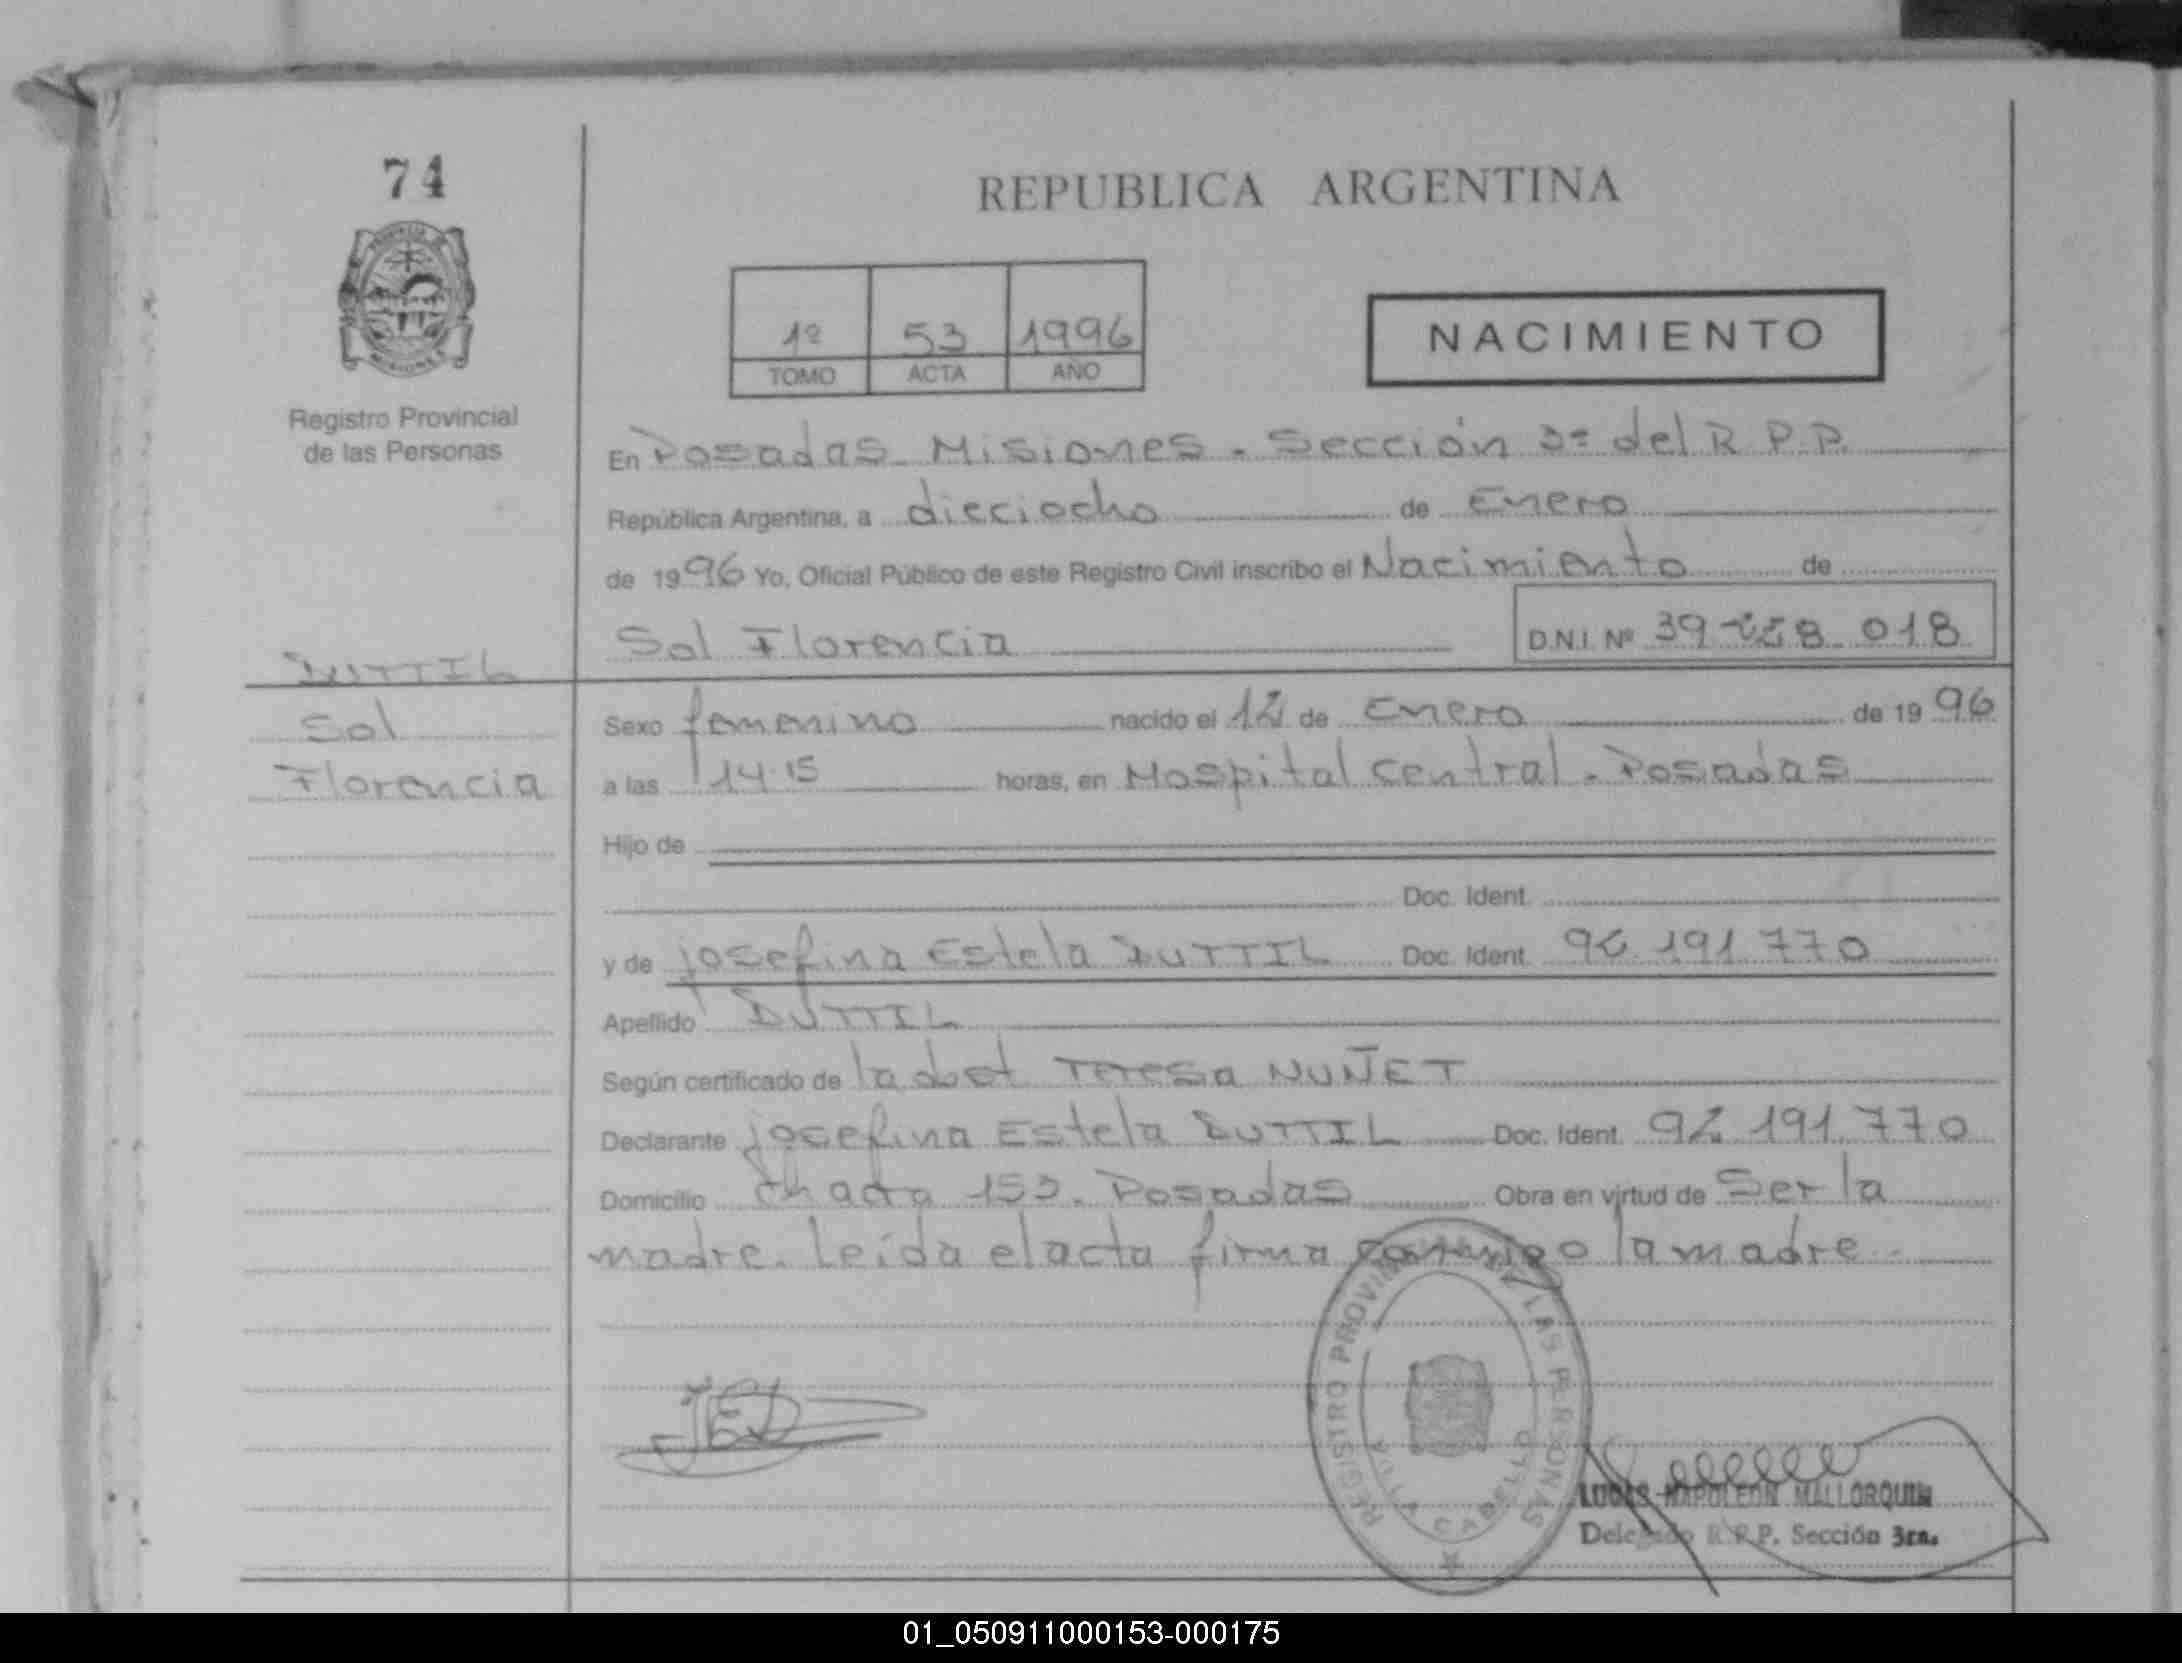 74
PROVINCIA DE
MISIONES
Registro Provincial
de las Personas
REPUBLICA ARGENTINA
1º 53 1996
TOMO ACTA AÑO
NACIMIENTO
En Posadas Misiones - Sección 3ª del R.P.P.
República Argentina, a dieciocho de Enero
de 1996 Yo, Oficial Público de este Registro Civil inscribo el Nacimiento de
Sol Florencia D.N.I. Nº 39 018
DUTTIL
Sol
Florencia
Sexo femenino nacido el 12 de Enero de 1996
a las 14.15 horas, en Hospital Central - Posadas
Hijo de
Doc. Ident.
y de Josefina Estela DUTTIL Doc. Ident. 92.191.770
Apellido DUTTIL
Según certificado de la obst Teresa NUÑET
Declarante Josefina Estela DUTTIL Doc. Ident. 92.191.770
Domicilio Chacra 153. Posadas Obra en virtud de Ser la
madre. Leída el acta firma conmigo la madre.
REGISTRO PROVINCIAL DE LAS PERSONAS
CABELLO
LUCAS NAPOLEON MALLORQUIN
Delegado R.P.P. Sección 3ra.
01_050911000153-000175